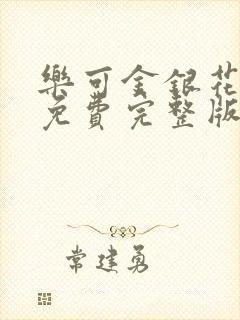 樂可金銀花
免費完整版
常建勇